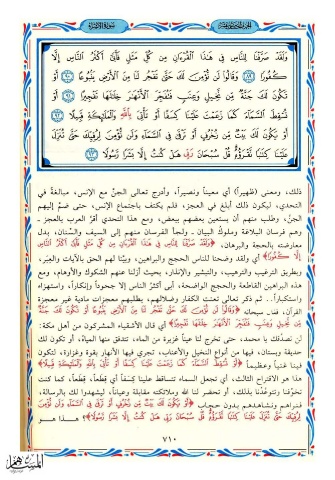 سورة الإسراء
وَلَقَدْ صَرَّفْنَا لِلنَّاسِ فِي هَٰذَا الْقُرْءَانِ مِن كُلِّ مَثَلٍ فَأَبَىٰ أَكْثَرُ النَّاسِ إِلَّا
كُفُورًا ٨٩ وَقَالُوا لَن نُّؤْمِنَ لَكَ حَتَّىٰ تَفْجُرَ لَنَا مِنَ الْأَرْضِ يَنبُوعًا ٩٠ أَوْ
تَكُونَ لَكَ جَنَّةٌ مِّن نَّخِيلٍ وَعِنَبٍ فَتُفَجِّرَ الْأَنْهَارَ خِلَالَهَا تَفْجِيرًا ٩١ أَوْ
تُسْقِطَ السَّمَاءَ كَمَا زَعَمْتَ عَلَيْنَا كِسَفًا أَوْ تَأْتِيَ بِاللَّهِ وَالْمَلَائِكَةِ قَبِيلًا ٩٢
أَوْ يَكُونَ لَكَ بَيْتٌ مِّن زُخْرُفٍ أَوْ تَرْقَىٰ فِي السَّمَاءِ وَلَن نُّؤْمِنَ لِرُقِيِّكَ حَتَّىٰ تُنَزِّلَ
عَلَيْنَا كِتَابًا نَّقْرَؤُهُ قُلْ سُبْحَانَ رَبِّي هَلْ كُنتُ إِلَّا بَشَرًا رَّسُولًا ٩٣
ذلك، ومعنى (ظهيراً) أي معيناً ونصيراً، وأدرج تعالى الجنَّ مع الإنس، مبالغةً في
التحدي، ليكون ذلك أبلغ في العجز، فلم يكتف باجتماع الإنس، حتى ضمَّ إليهم
الجنَّ، وطلب منهم أن يستعين بعضهم ببعض، ومع هذا التحدي أقرّ العرب بالعجز ـ
وهم فرسان البلاغة وملوك البيان ـ ولجأ الفرسان منهم إلى السيف والسِّنان، بدل
معارضته بالحجة والبرهان، ﴿وَلَقَدْ صَرَّفْنَا لِلنَّاسِ فِي هَٰذَا الْقُرْءَانِ مِن كُلِّ مَثَلٍ فَأَبَىٰ أَكْثَرُ النَّاسِ
إِلَّا كُفُورًا﴾ أي ولقد وضحنا للناس الحجج والبراهين، وبيّنا لهم الحق بالآيات والعبر،
وبطريق الترغيب والترهيب، والتبشير والإنذار، بحيث أزلنا عنهم الشكوك والأوهام، ومع
هذه البراهين القاطعة والحجج الواضحة، أبى أكثر الناس إلا جحوداً وإنكاراً، واستهزاء
واستكباراً.. ثم ذكر تعالى تعنت الكفار وضلالهم، بطلبهم معجزات مادية غير معجزة
القرآن، فقال سبحانه ﴿وَقَالُوا لَن نُّؤْمِنَ لَكَ حَتَّىٰ تَفْجُرَ لَنَا مِنَ الْأَرْضِ يَنبُوعًا أَوْ تَكُونَ لَكَ جَنَّةٌ
مِّن نَّخِيلٍ وَعِنَبٍ فَتُفَجِّرَ الْأَنْهَارَ خِلَالَهَا تَفْجِيرًا﴾ أي قال الأشقياء المشركون من أهل مكة:
لن نصدّقك يا محمد، حتى تخرج لنا عيناً غزيرة من الماء، تتدفق منها المياه، أو تكون لك
حديقة وبستان، فيها من أنواع النخيل والأعناب، تجري فيها الأنهار بقوة وغزارة، لتكون
فينا غنياً وعظيماً ﴿أَوْ تُسْقِطَ السَّمَاءَ كَمَا زَعَمْتَ عَلَيْنَا كِسَفًا أَوْ تَأْتِيَ بِاللَّهِ وَالْمَلَائِكَةِ قَبِيلًا﴾
هذا هو الاقتراح الثالث، أي تجعل السماء تتساقط علينا كِسَفاً أي قِطعاً، قِطَعاً، كما كنت
تخوّفنا وتتوعّدنا بذلك، أو تحضر لنا الله وملائكته مقابلة وعياناً، ليشهدوا لك بالرسالة،
فنراهم ونشاهدهم بدون حجاب ﴿أَوْ يَكُونَ لَكَ بَيْتٌ مِّن زُخْرُفٍ أَوْ تَرْقَىٰ فِي السَّمَاءِ وَلَن نُّؤْمِنَ
لِرُقِيِّكَ حَتَّىٰ تُنَزِّلَ عَلَيْنَا كِتَابًا نَّقْرَؤُهُ قُلْ سُبْحَانَ رَبِّي هَلْ كُنتُ إِلَّا بَشَرًا رَّسُولًا﴾؟ هـذا هـو
٧١٠